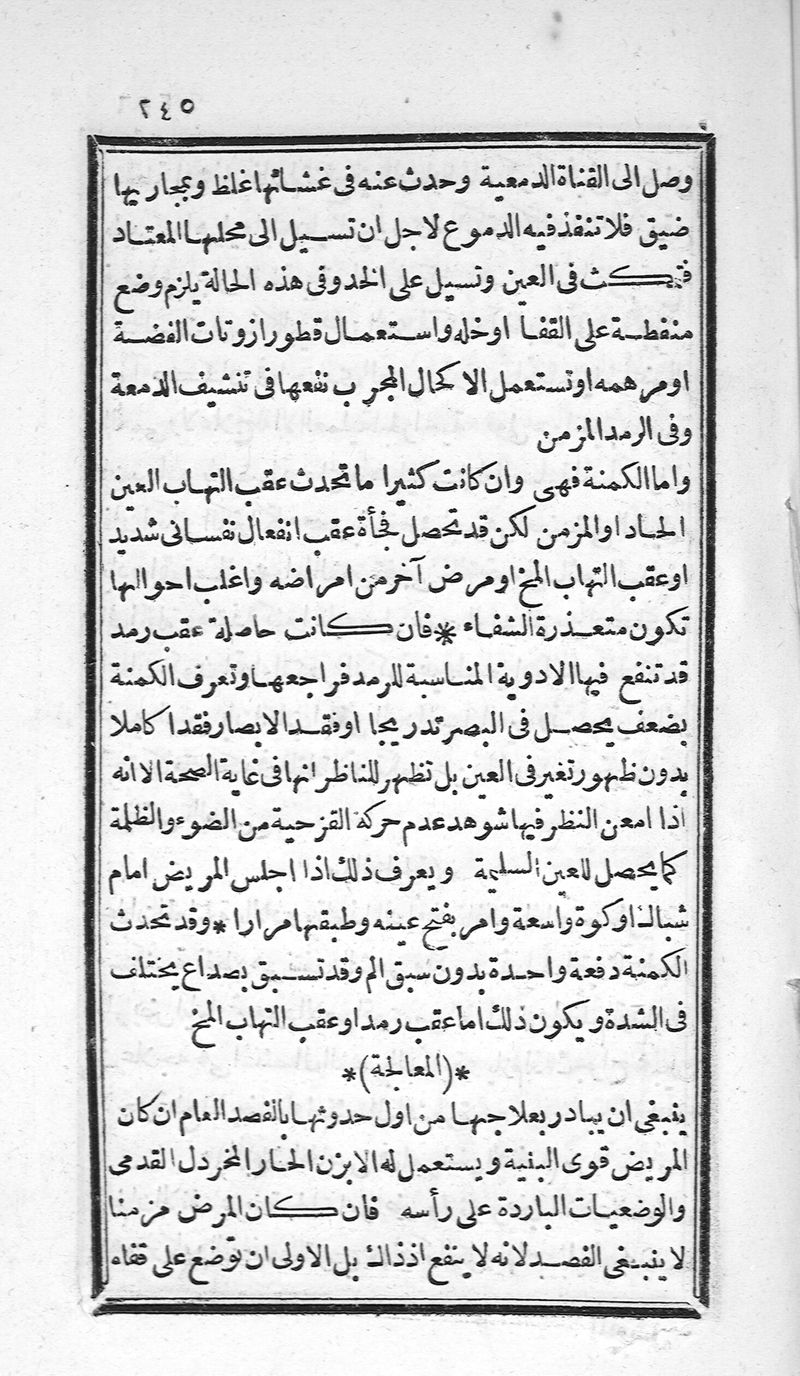 ٢٤٥
وصل الى القناة الدمعية وحدث عنه فى غشائها غلظ وبمجاريها
ضيق فلا تنفذ فيه الدموع لاجل ان تسيل الى محلها المعتاد
فتمكث فى العين وتسيل على الخد وفى هذه الحالة يلزم وضع
منفطة على القفا اوخله واستعمال قطور ازوتات الفضة
اومرهمه اوتستعمل الاكحال المجرب نفعها فى تنشيف الدمعة
وفى الرمد المزمن
واما الكمنة فهى وان كانت كثيرا ماتحدث عقب التهاب العين
الحاد اوالمزمن لكن قد تحصل فجأة عقب انفعال نفسانى شديد
اوعقب التهاب المخ اومرض آخر من امراضه واغلب احوالها
تكون متعذرة الشفاء * فان كانت حاصلة عقب رمد
قد تنفع فيها الادوية المناسبة للرمد فراجعها وتعرف الكمنة
بضعف يحصل فى البصر تدريجا اوفقد الابصار فقدا كاملا
بدون ظهور تغير فى العين بل تظهر للناظر انها فى غاية الصحة الا انه
اذا امعن النظر فيها شوهد عدم حركة القزحية من الضوء والظلمة
كما يحصل للعين السليمة ويعرف ذلك اذا اجلس المريض امام
شباك اوكوة واسعة وامر بفتح عينه وطبقها مرارا * وقد تحدث
الكمنة دفعة واحدة بدون سبق الم وقد تسبق بصداع يختلف
فى الشدة ويكون ذلك اما عقب رمد اوعقب التهاب المخ
*(المعالجة)*
ينبغى ان يبادر بعلاجها من اول حدوثها بالفصد العام ان كان
المريض قوى البنية ويستعمل له الابزن الحار المخردل القدمى
والوضعيات الباردة على رأسه فان كان المرض مزمنا
لاينبغى الفصد لانه لاينفع اذذاك بل الاولى ان توضع على قفاه